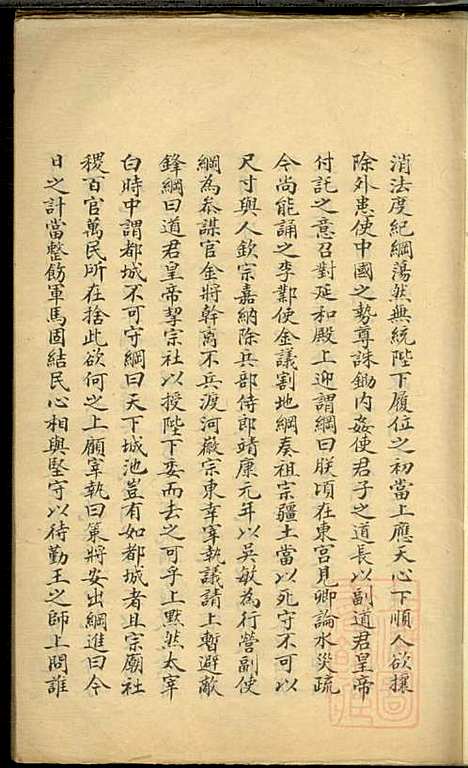 消法度紀綱蕩然無統陛下履位之初當上應天心下順人欲攘
除外患使中國之勢尊誅鋤内姦使君子之道長以副道君皇帝
付託之意召對延和殿上迎謂綱曰朕頃在東宮見卿論水災疏
今尚能誦之李鄴使金議割地綱奏祖宗疆土當以死守不可以
尺寸與人欽宗嘉納除兵部侍郎靖康元年以吳敏為行營副使
綱為叅謀官金將幹离不兵渡河徽宗東幸宰執議請上暫避敵
鋒綱曰道君皇帝挈宗社以授陛下委而去之可乎上默然太宰
白時中謂都城不可守綱曰天下城池豈有如都城者且宗廟社
稷百官萬民所在捨此欲何之上顧宰執曰策將安出綱進曰今
日之計當整飭軍馬固結民心相與堅守以待勤王之師上問誰